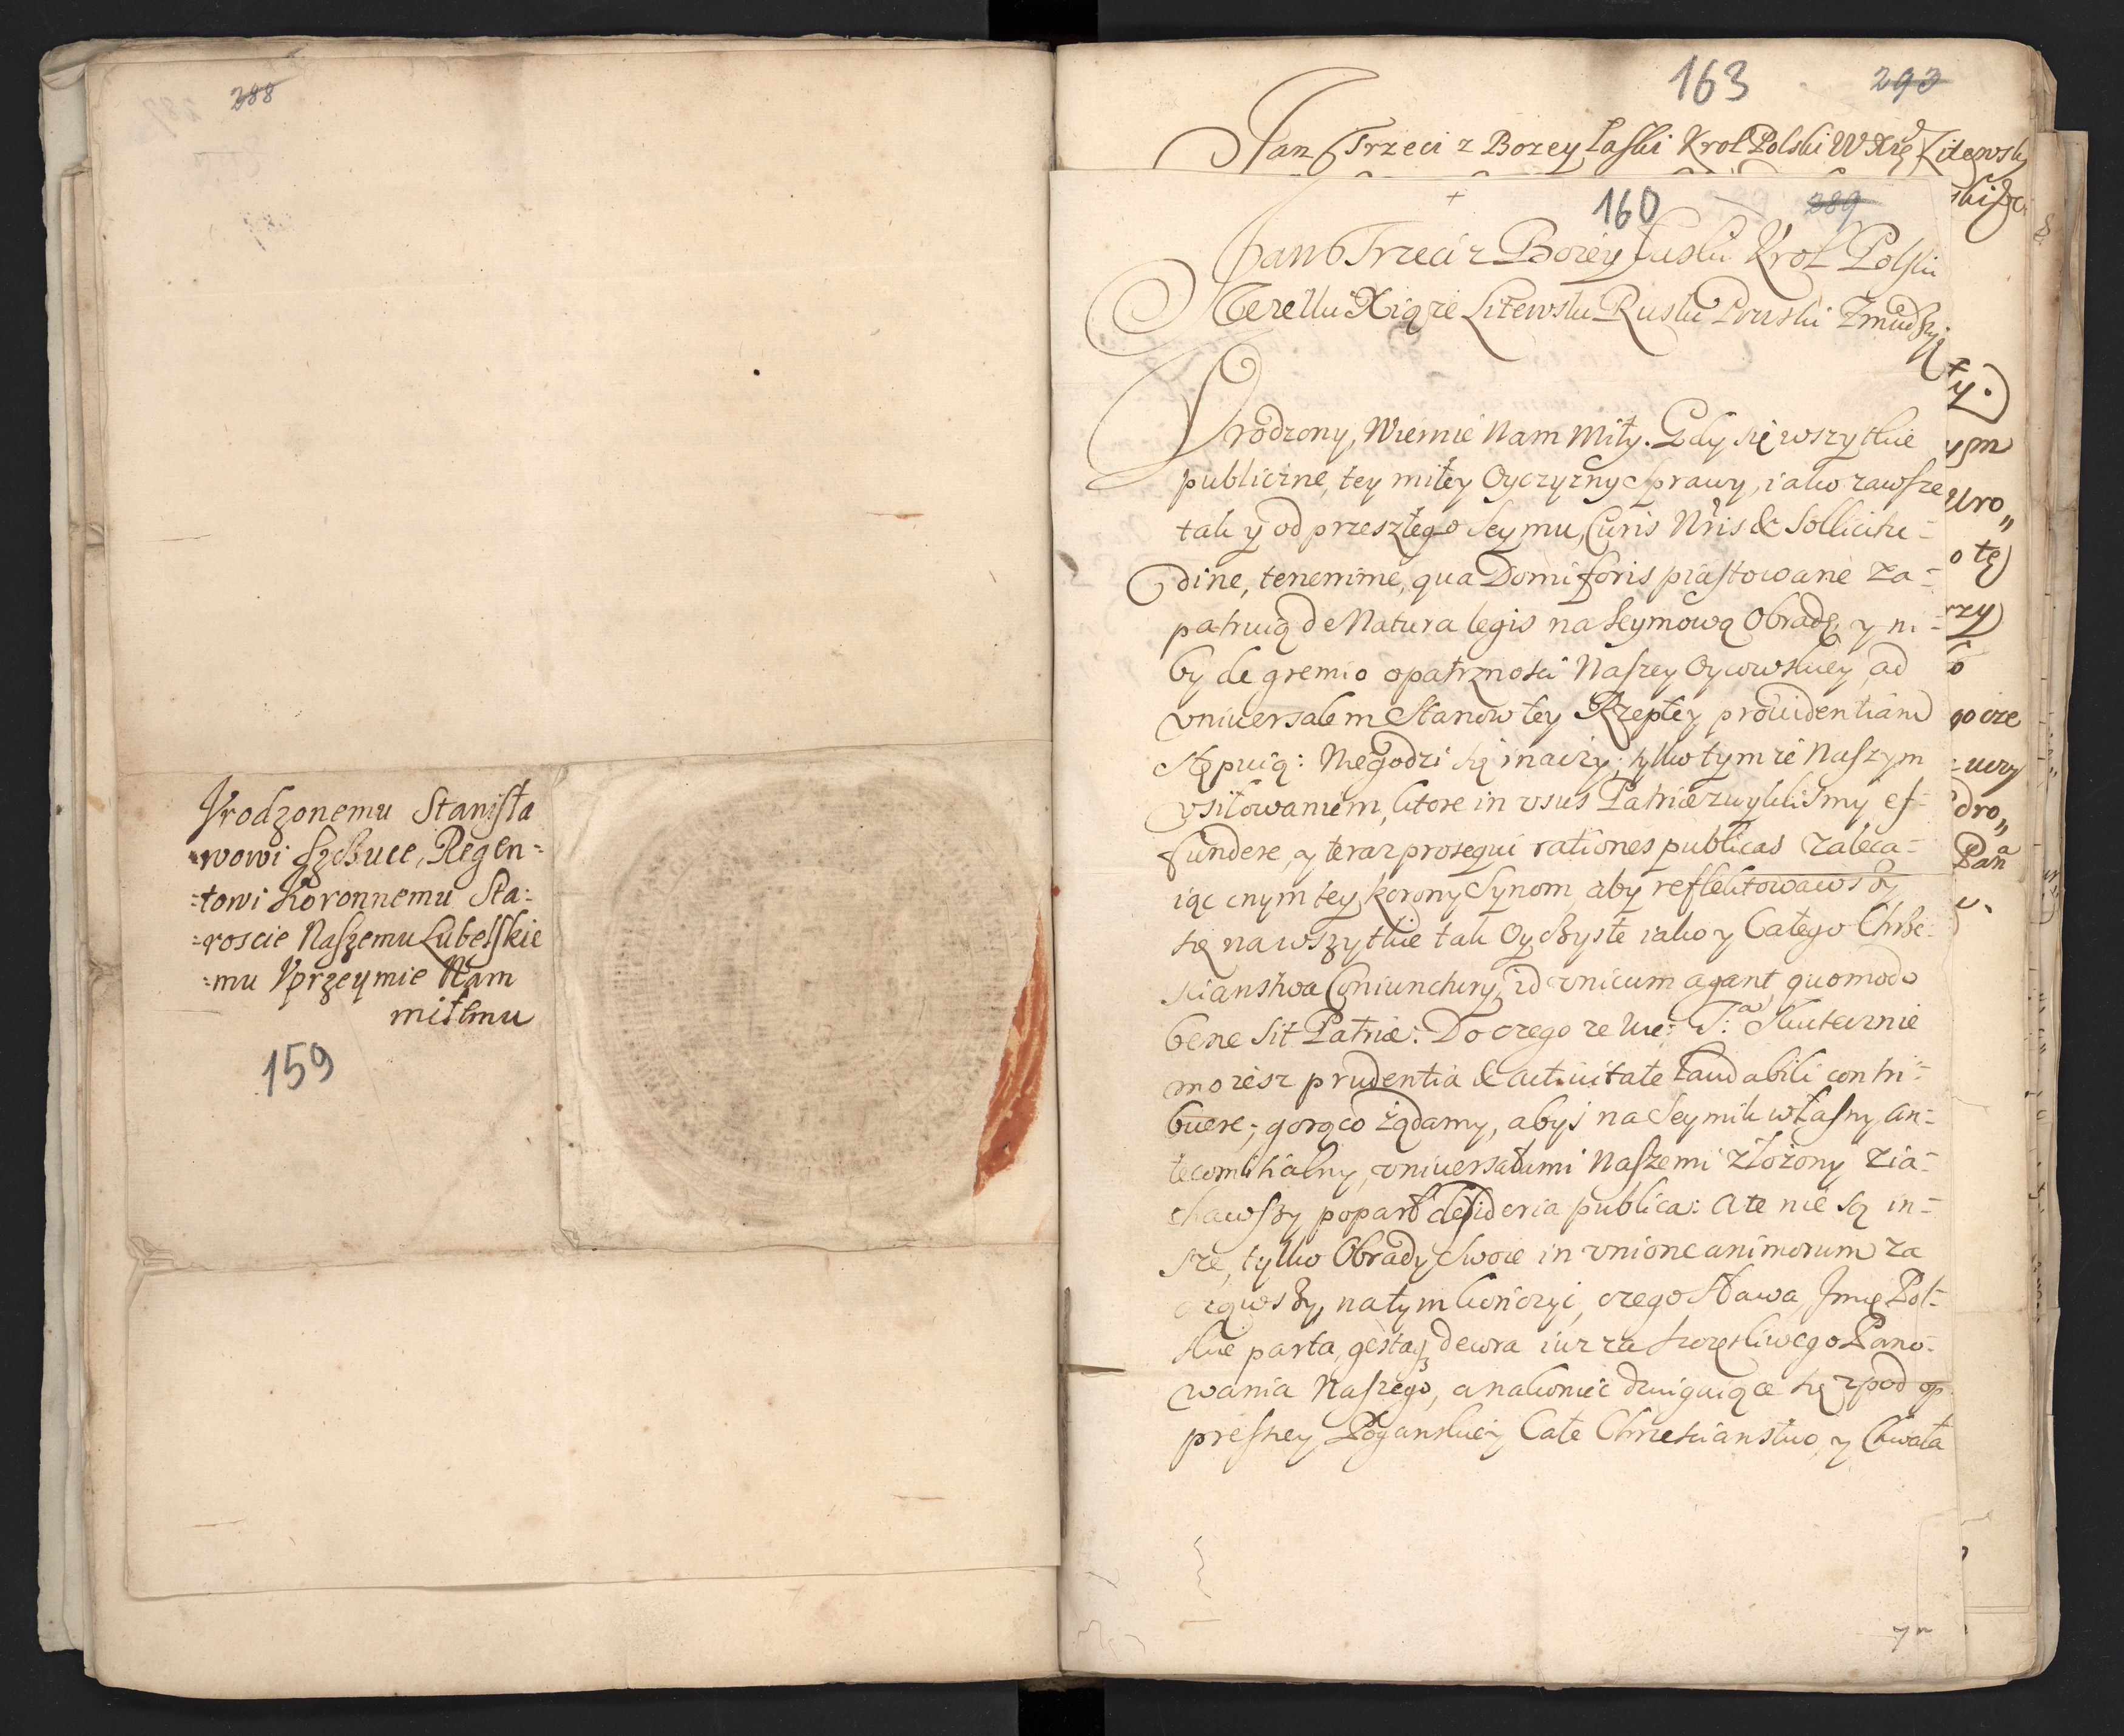 288
Vrodzonemu Stanisła
wowi Szczuce, Regen=
=towi Koronnemu Sta:
=roscie Naszemu Lubelskie
=mu Vprzeymie Nam
miłemu
159
163 293
Jan Trzeci z Bozey Łaski Krol Polski W Xię Litewsky
ski &c.
160 289
Jan Trzeci z Bozey Łaski Krol Polski
Wielki Xiąze Litewski Ruski Pruski Zmudzky
Vrodzony, Wiernie Nam Miły. Gdy się wszytkie
publiczne, tey miłey Oyczyzny Sprawy, iako zawsze
tak y od przeszłego Seymu, Curis Nris & Sollicitu=
dine, tenerrime, qua Domi foris piastowane za=
patruią de Natura legis na Seymową Obradę, y ni=
by de gremio opatrznosci Naszey Oycowskiey ad
vniuersalem Stanow tey Rzeptey prouidentiam
stępuią: Niegodzi się inaczy, tylko tym ze Naszym
vsiłowaniem, ktore in vsus Patriæ zwykliśmy ef=
fundere, y teraz prosequi rationes publicas zaleca=
iąc cnym tey Korony Synom, aby reflektowawszy
się na wszytkie tak Oyczyste iako y Całego Chrze=
scianstwa Coniunctury, id vnicum agant quomodo
bene sit Patriæ: Do czego ze Wie: Ta Skutecznie
mozesz prudentia & actiuitate laudabili contri=
buere; gorąco żądamy, abyś na Seymik własny An=
tecomitialny, vniuersałami Naszemi złożony zia=
chawszy poparł desideria publica: A te nie są in=
sze, tylko Obrady swoie in vnione animorum za
cząwszy, na tym kończyć, czego Sława, Imię Pol=
skie parta, gestaq decora iuz za szczęśliwego Pano=
wania Naszego, a nakoniec dzwigaiące się zpod op
pressyey Poganskiey Całe Chrzescianstwo, y Chwała